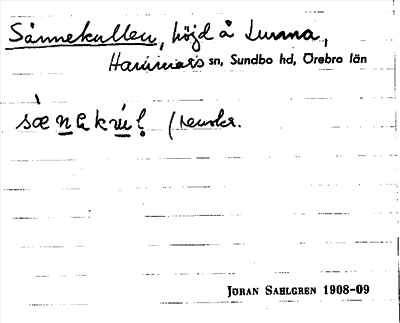 Sånnekullen, höjd å Lunna,
Hammars sn, Sundbo hd, Örebro län
JÖRAN SAHLGREN 1908-09